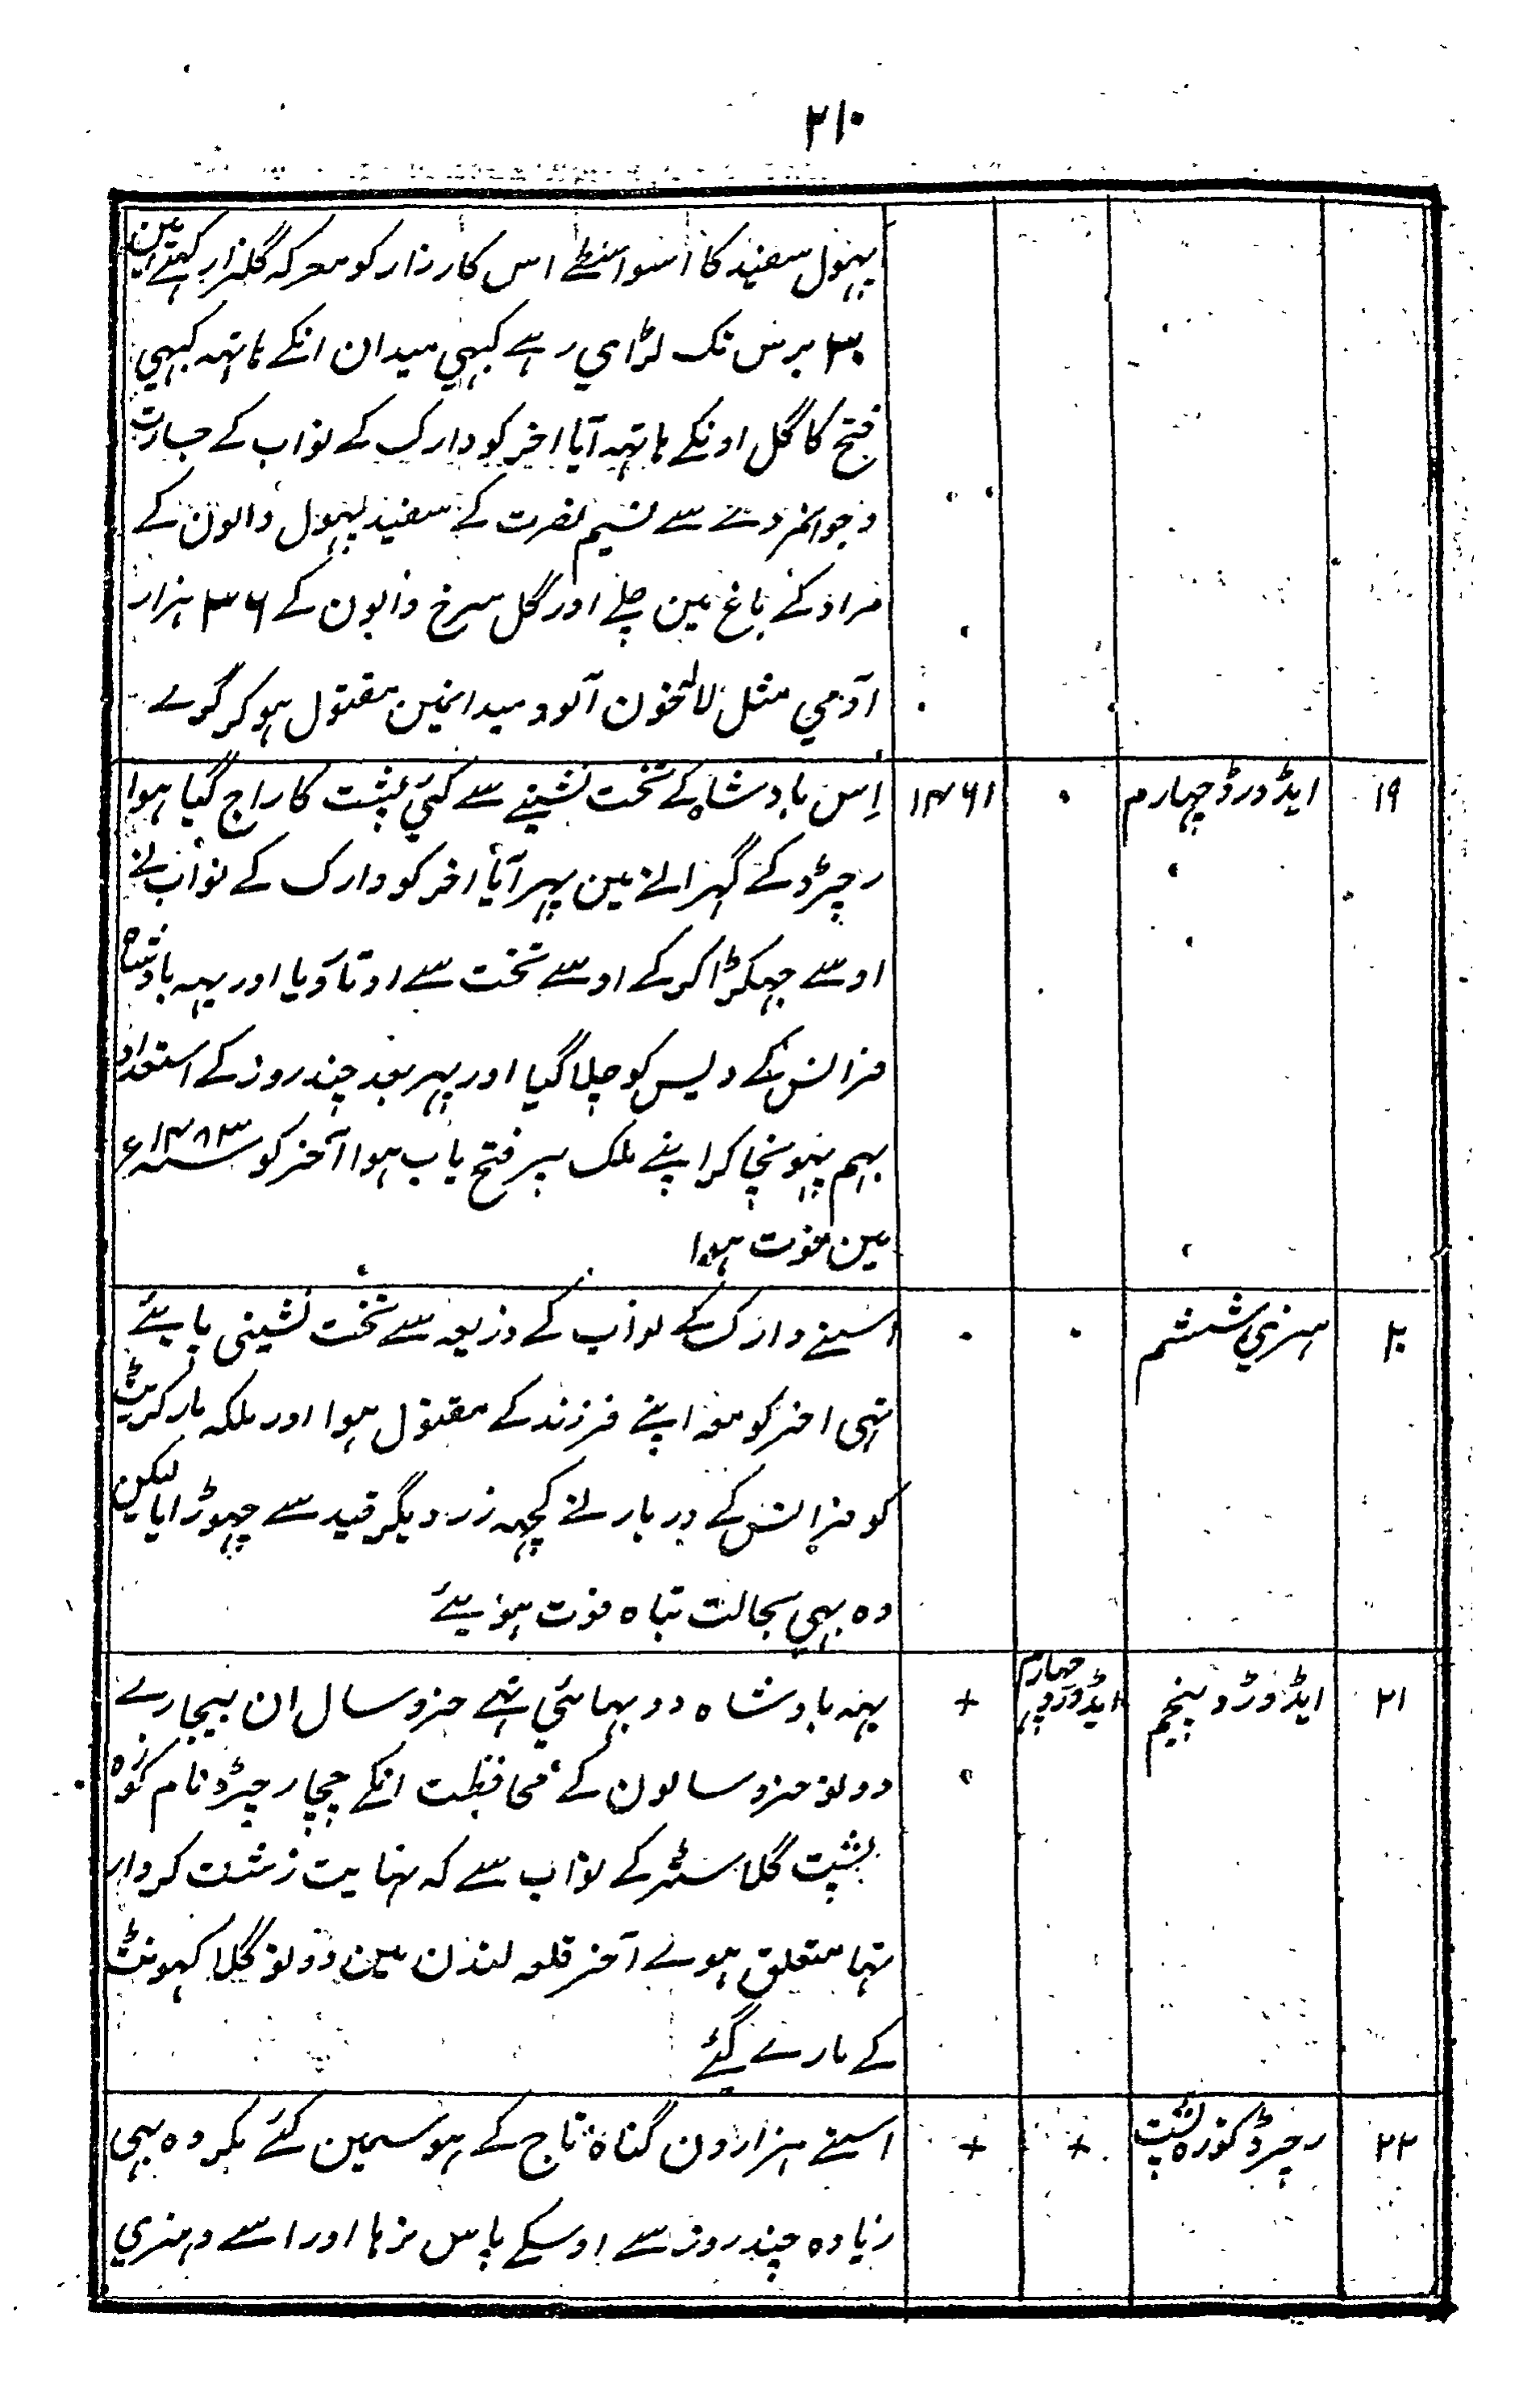 ۲۱۰
پہول سفید کا اسواسطے اس کارزار کو معرکہ گلزار کہتے ہین
۳۰ برس تک لڑاي رہے کبہي میدان انکے ہاتہہ کبہي
فتح کا گل اونکے ہاتہہ آیا اخر کو وارک کے نواب کے جسارت
و جوانمردے سے نسیم نصرت کے سفید پہول والون کے
مراد کے باغ مین چلے اور گل سرخ والون کے ۳۶ ہزار
آدمي مثل لالہ خون آلود میدانمین مقتول ہو کر گرے
۱۹ ایڈورڈ چہارم ۰ ۱۴۶۱ اِس بادشاہ کے تخت نشینے سے کئي پشت کا راج گیا ہوا
رچرڈ کے گہرانے مین پہر آیا اخر کو وارک کے نواب نے
اوسے جہکڑا کر کے اوسے تخت سے اوتار دیا اور یہہ بادشاہ
فرانس کے دیس کو چلا گیا اور پہر بعد چند روز کے استعداد
بہم پہونچا کر اپنے ملک پر فتح یاب ہوا آخر کو سنہ ۱۴۸۳ء
مین فوت ہوا
۲۰ ہنري ششم ۰ ۰ اسنے وارک کے نواب کے ذریعہ سے تخت نشینی پاے
تہی اخر کو معہ اپنے فرزند کے مقتول ہوا اور ملکہ مارکریٹ
کو فرانس کے دربار نے کچہہ زر دیگر قید سے چہوڑایا لیکن
وہ بہي بحالت تباہ فوت ہوے
۲۱ ایڈورڈ پنجم ایڈورڈ چہارم + یہہ بادشاہ دو بہائي تہے خرد سال ان بیچارے
دونو خرد سالون کے محافظت انکے چچا رچرڈ نام کوزہ
پشت گلاسٹر کے نواب سے کہ نہایت زشت کردار
تہا متعلق ہوے آخر قلعہ لندن مین دونو گلا کہونٹ
کے مارے گئے
۲۲ رچرڈ کوزہ پشت + + اسنے ہزارون گناہ تاج کے ہوسمین کئے مگر وہ بہی
زیادہ چند روز سے اوسکے پاس نرہا اور اسے ہنري